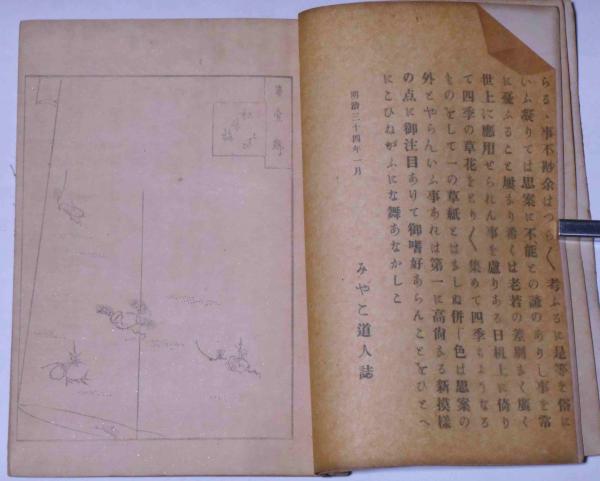 らるゝ事不尠余はつら〱考ふるに是等を俗に
いふ凝りては思案に不能との諺のありし事を常
に憂ふること屡なり希くは老若の差別なく廣く
世上に應用せられん事を慮りある日机上に倚り
て四季の草花をとり〲集めて四季もようなる
ものをして一の草紙とはなしぬ併し色は思案の
外とやらんいふ事あれは第一に高尚なる新摸樣
の点に御注目ありて御嗜好あらんことをひとへ
にこひねがふになん舞あなかしこ
明治三十四年一月
みやこ道人誌